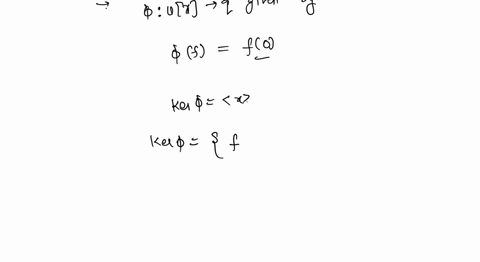 → φ: υ[x] → q given by
φ(f) = f(0)
Ker φ = <x>
Ker φ = { f